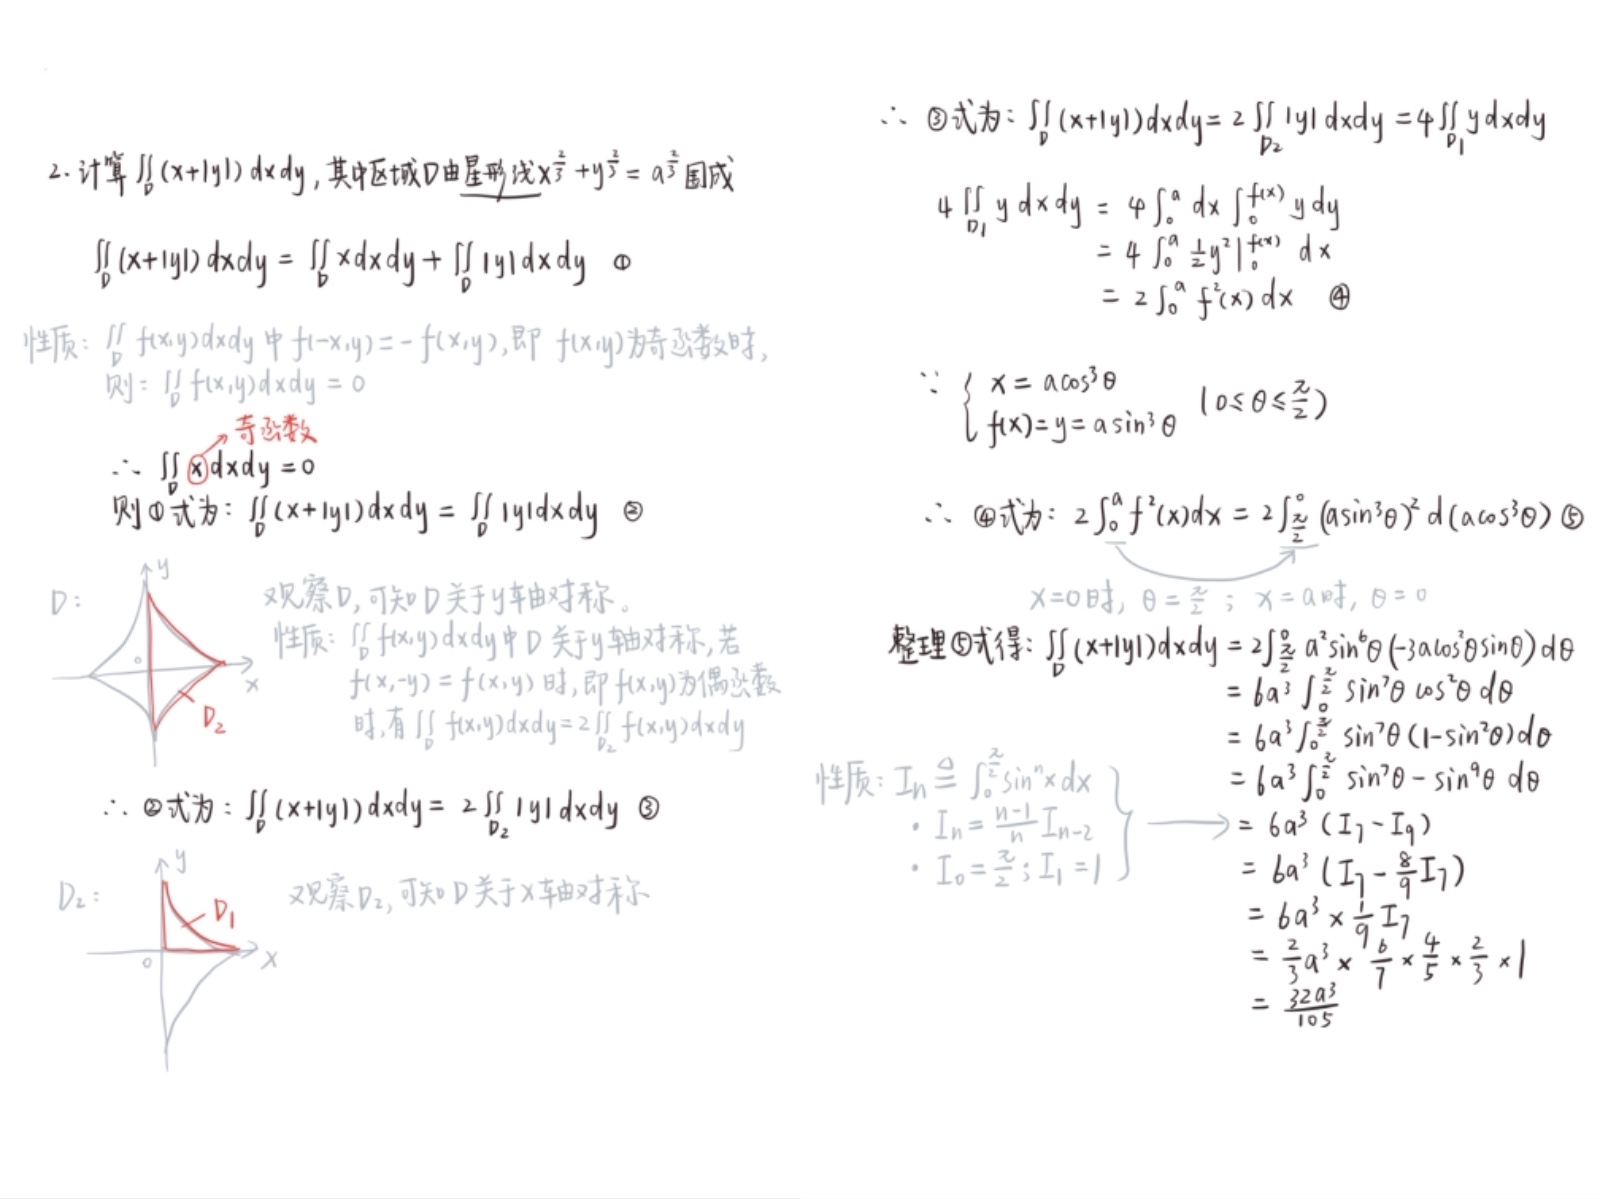 2. 计算 ∬_D (x+|y|) dxdy, 其中区域D由星形线 x^{2/3} + y^{2/3} = a^{2/3} 围成
∬_D (x+|y|) dxdy = ∬_D x dxdy + ∬_D |y| dxdy ①
性质: ∬_D f(x,y)dxdy 中 f(-x,y) = -f(x,y), 即 f(x,y)为奇函数时,
则: ∬_D f(x,y)dxdy = 0
奇函数
∴ ∬_D x dxdy = 0
则①式为: ∬_D (x+|y|) dxdy = ∬_D |y| dxdy ②
D:
y
0
x
D₂
观察D, 可知D关于y轴对称。
性质: ∬_D f(x,y)dxdy中D关于y轴对称, 若
f(x,-y) = f(x,y) 时, 即f(x,y)为偶函数
时, 有 ∬_D f(x,y)dxdy = 2∬_{D₂} f(x,y)dxdy
∴ ②式为: ∬_D (x+|y|) dxdy = 2∬_{D₂} |y| dxdy ③
D₂:
y
D₁
0
x
观察D₂, 可知D关于x轴对称
∴ ③式为: ∬_D (x+|y|)dxdy = 2∬_{D₂} |y| dxdy = 4∬_{D₁} y dxdy
4∬_{D₁} y dxdy = 4∫_0^a dx ∫_0^{f(x)} y dy
= 4∫_0^a ½y²|_0^{f(x)} dx
= 2∫_0^a f²(x) dx ④
∵ { x = acos³θ
f(x) = y = asin³θ (0≤θ≤π/2)
∴ ④式为: 2∫_0^a f²(x)dx = 2∫_{π/2}^0 (asin³θ)² d(acos³θ) ⑤
x=0时, θ=π/2 ; x=a时, θ=0
整理⑤式得: ∬_D (x+|y|)dxdy = 2∫_{π/2}^0 a²sin⁶θ(-3acos²θsinθ)dθ
= 6a³∫_0^{π/2} sin⁷θ cos²θ dθ
= 6a³∫_0^{π/2} sin⁷θ (1-sin²θ)dθ
= 6a³∫_0^{π/2} sin⁷θ - sin⁹θ dθ
性质: I_n ≜ ∫_0^{π/2} sinⁿx dx
· I_n = (n-1)/n I_{n-2}
· I₀ = π/2 ; I₁ = 1
= 6a³ (I₇ - I₉)
= 6a³ (I₇ - 8/9 I₇)
= 6a³ × 1/9 I₇
= 2/3 a³ × 6/7 × 4/5 × 2/3 × 1
= 32a³/105